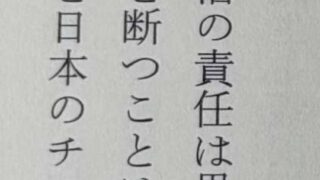 の責任は
断つこと
日本のチ